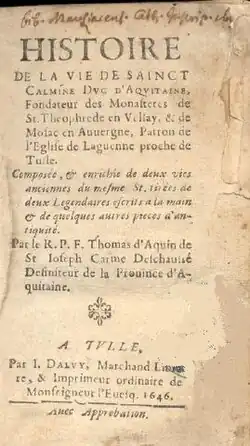 HISTOIRE
DE LA VIE DE SAINCT
CALMINE DVC D'AQVITAINE,
Fondateur des Monasteres de
St. Theophrede en Vellay, & de
Mosac en Auuergne, Patron de
l'Eglise de Laguenne proche de
Tulle.
Composée, & enrichie de deux vies
anciennes du mesme St. tirées de
deux Legendaires escrits à la main
& de quelques autres pieces d'an-
tiquité.
Par le R. P. F. Thomas d'Aquin de
St Ioseph Carme Deschaussé
Definiteur de la Prouince d'A-
quitaine.
A TVLLE,
Par I. DALVY, Marchand Librai-
re, & Imprimeur ordinaire de
Monseigneur l'Euesq. 1646.
Auec Approbation.